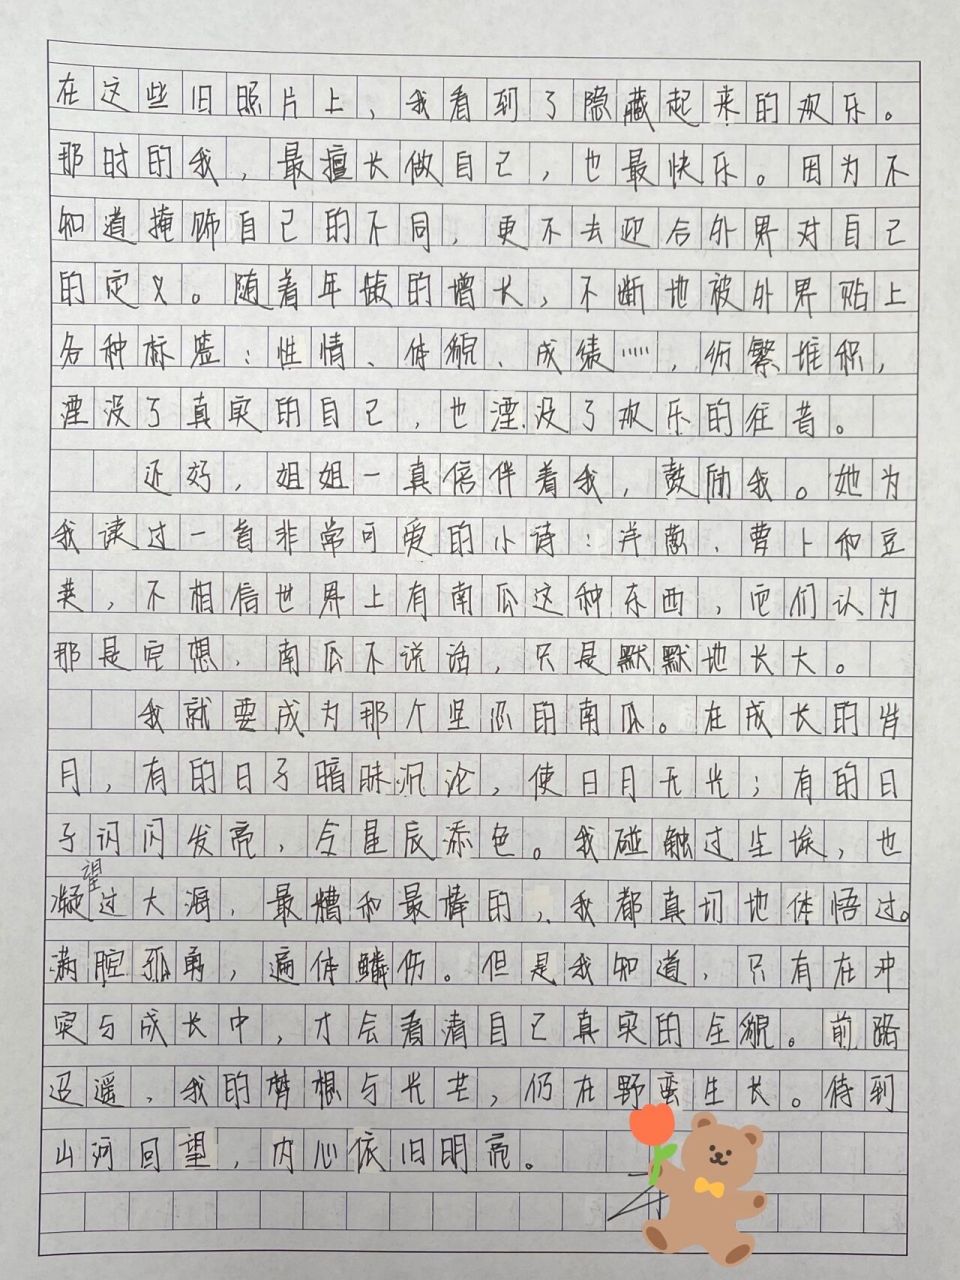 在这些旧照片上，我看到了隐藏起来的欢乐。
那时的我，最擅长做自己，也最快乐。因为不
知道掩饰自己的不同，更不去迎合外界对自己
的定义。随着年龄的增长，不断地被外界贴上
各种标签：性情、体貌、成绩……，纷繁堆积，
湮没了真实的自己，也湮没了欢乐的往昔。
还好，姐姐一真倍伴着我，鼓励我。她为
我读过一首非常可爱的小诗：洋葱、萝卜和豆
荚，不相信世界上有南瓜这种东西，它们认为
那是空想，南瓜不说话，只是默默地长大。
我就要成为那个坚的南瓜。在成长的岁
月，有的日子暗昧沉沦，使日月无光；有的日
子闪闪发亮，令星辰添色。我碰触过尘埃，也
凝望过大海，最糟和最棒的，我都真切地体悟过。
满腔孤勇，遍体鳞伤。但是我知道，只有在冲
突与成长中，才会看清自己真实的全貌。前路
迢遥，我的梦想与光芒，仍在野蛮生长。待到
山河回望，内心依旧明亮。